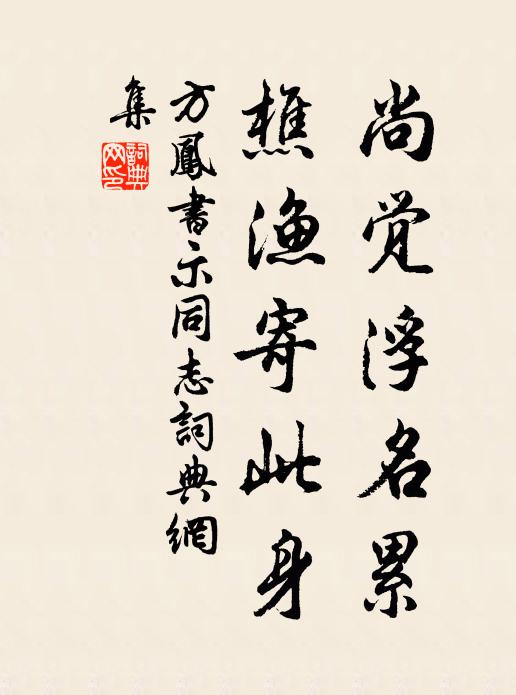 尚觉浮名累
樵渔寄此身
方鳳書示同志詞典網
集
詞典網印